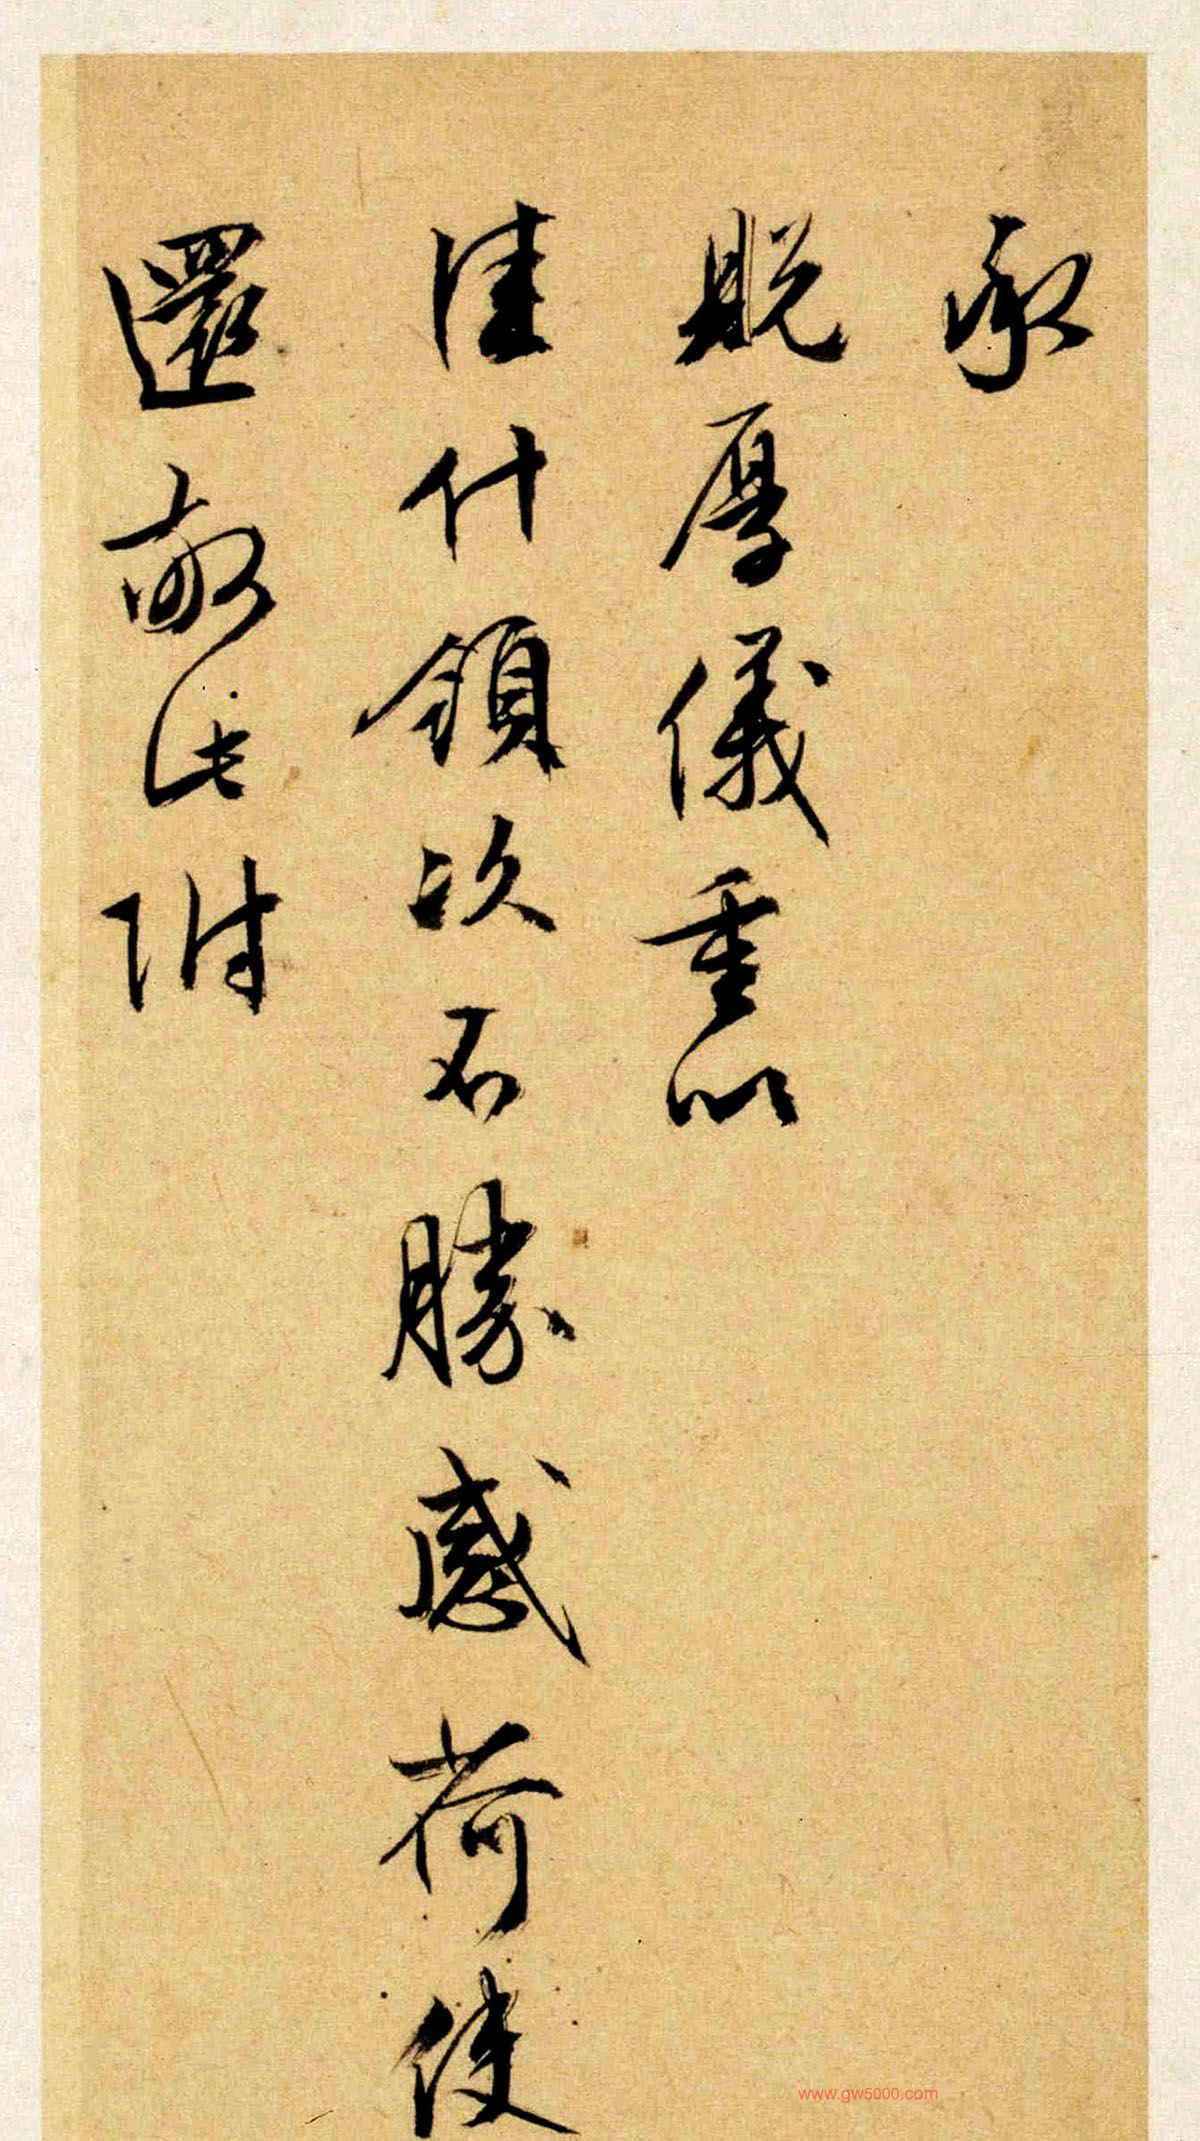 承
貺厚儀重以
佳什領次不勝感荷使
還敬此附
www.gw5000.com